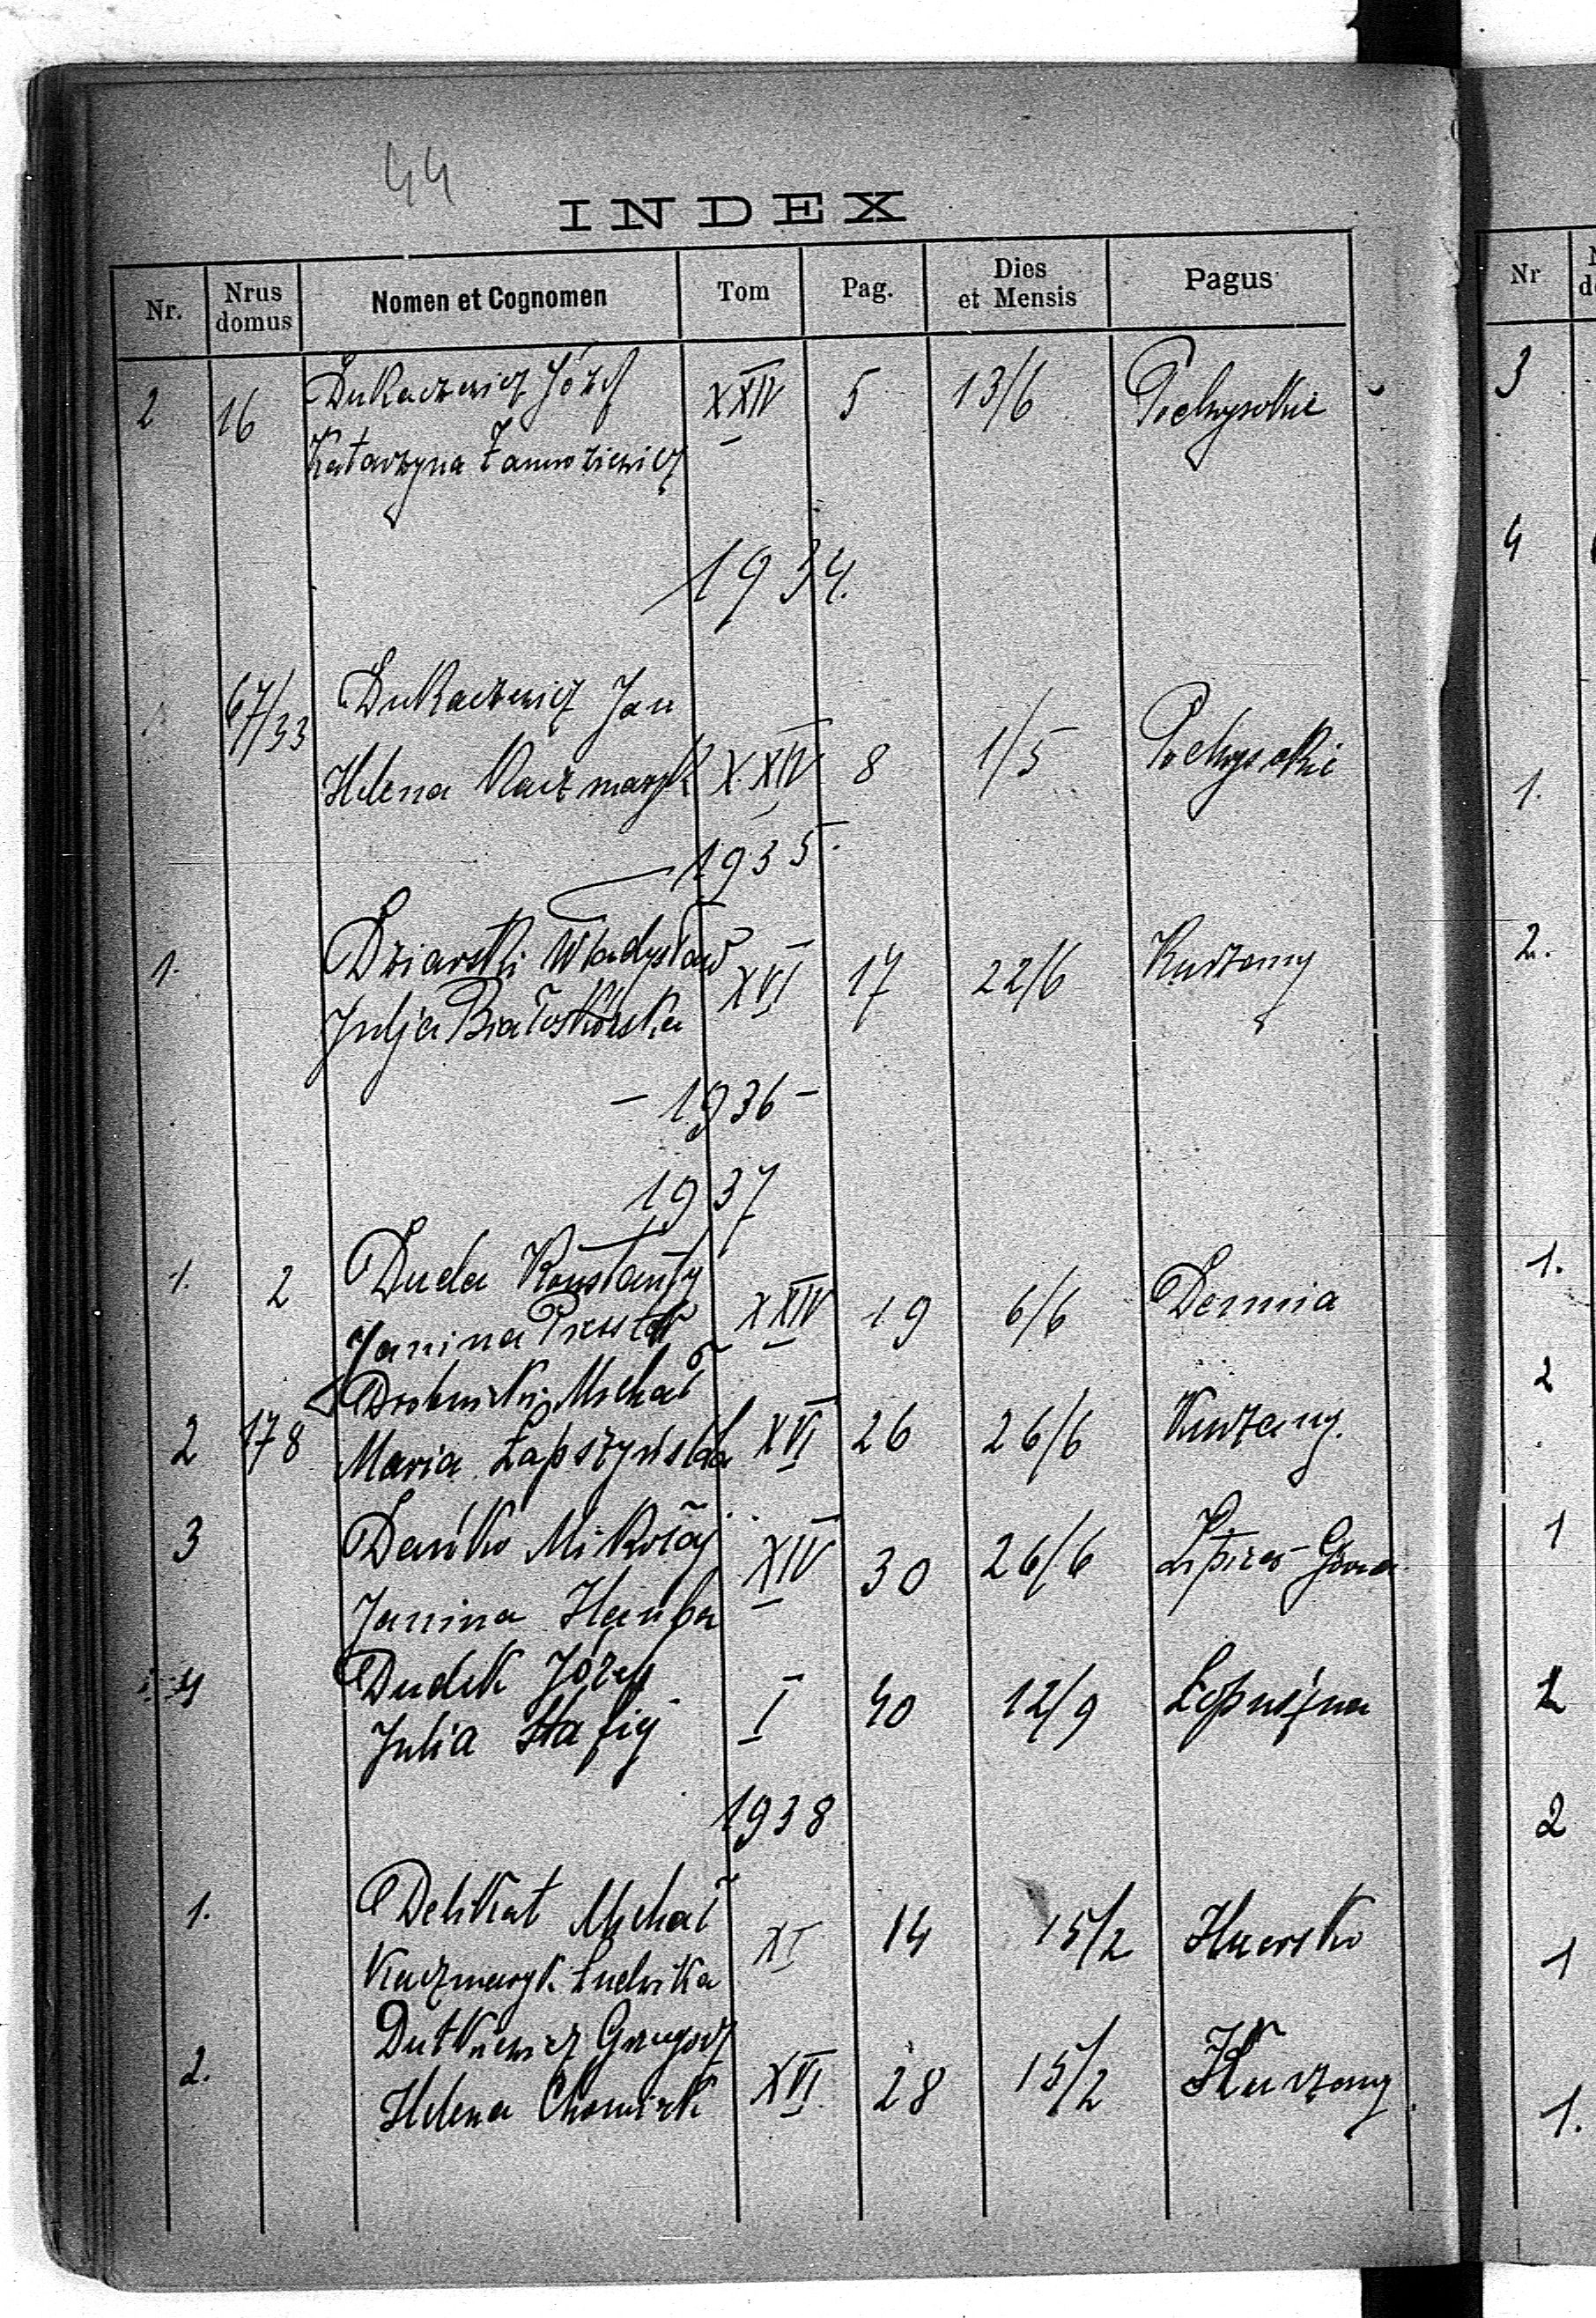 44
INDEX
Nr. Nrus domus Nomen et Cognomen Tom Pag. Dies et Mensis Pagus
2 16 Dukaczewicz Józef XXIV 5 13/6
Katarzyna
1934.
67/33 Dukaczewicz Jan
Helena Kaczmaryk XXIV 8 1/5
1935.
1. Dziarski Władysław XVI 17 22/6 Kurzany
Julja Białoskórska
- 1936 -
1937
1. 2 Duda Konstanty XXIV 19 6/6 Demnia
Janina
2 178 Drobnicki Michał XVI 26 26/6 Kurzany.
Maria Łapszyńska
3 Dańko Mikołaj XIV 30 26/6 Lipica Górna
Janina
4 Dudek Józef I 40 12/9 Łopuszna
Julia
1938
1. Delikat Michał XI 14 15/2
Kaczmaryk Ludwika
2. Dutkiewicz Grzegorz XVI 28 15/2 Kurzany
Helena
Nr
3
4
1.
2.
1.
2
1
2
2
1
1.